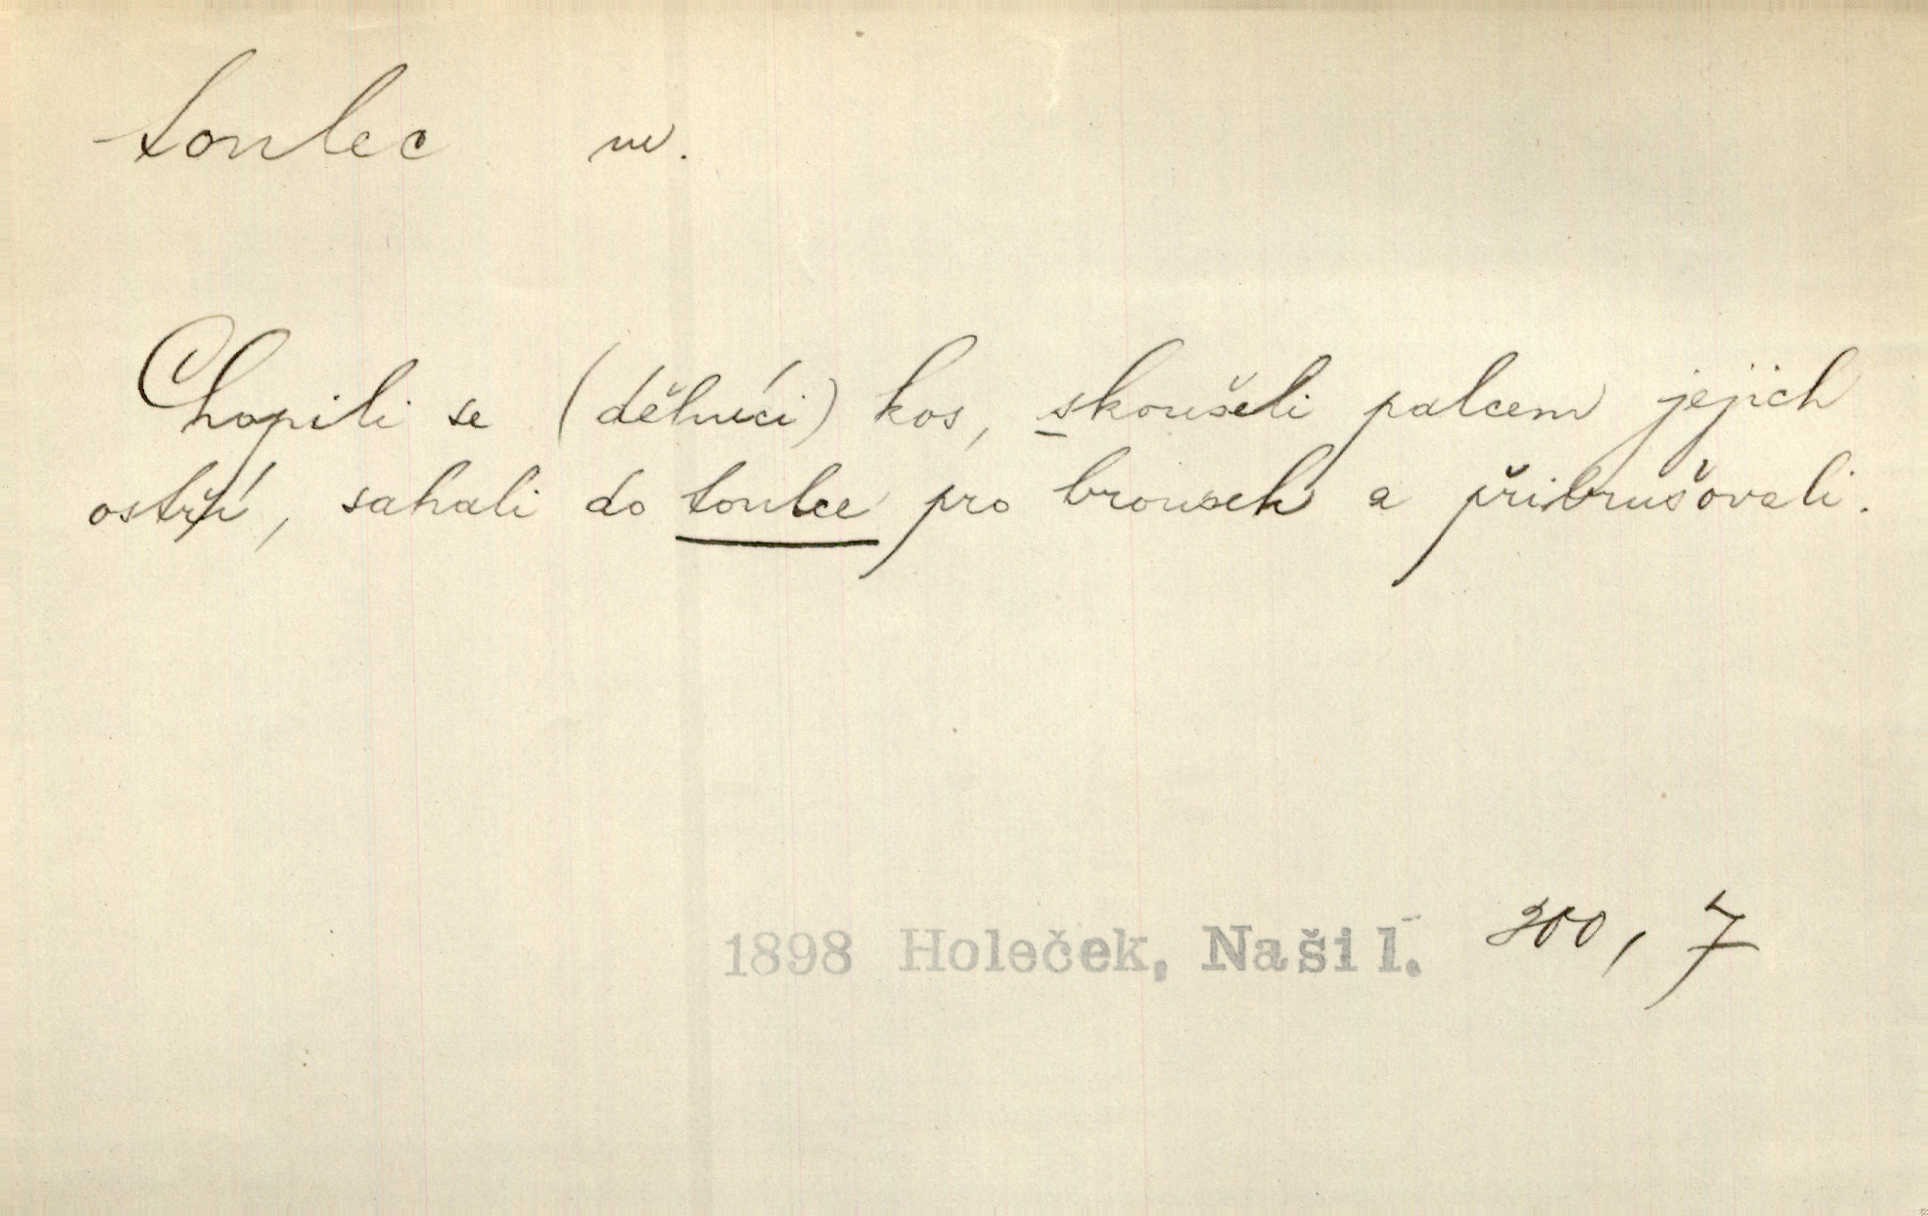 toulec m.
Chopili se (dělníci) kos, skoušeli palcem jejich
ostří, sahali do toulce pro brousek a přibrušovali.
1898 Holeček, Naši 1. 300, 7